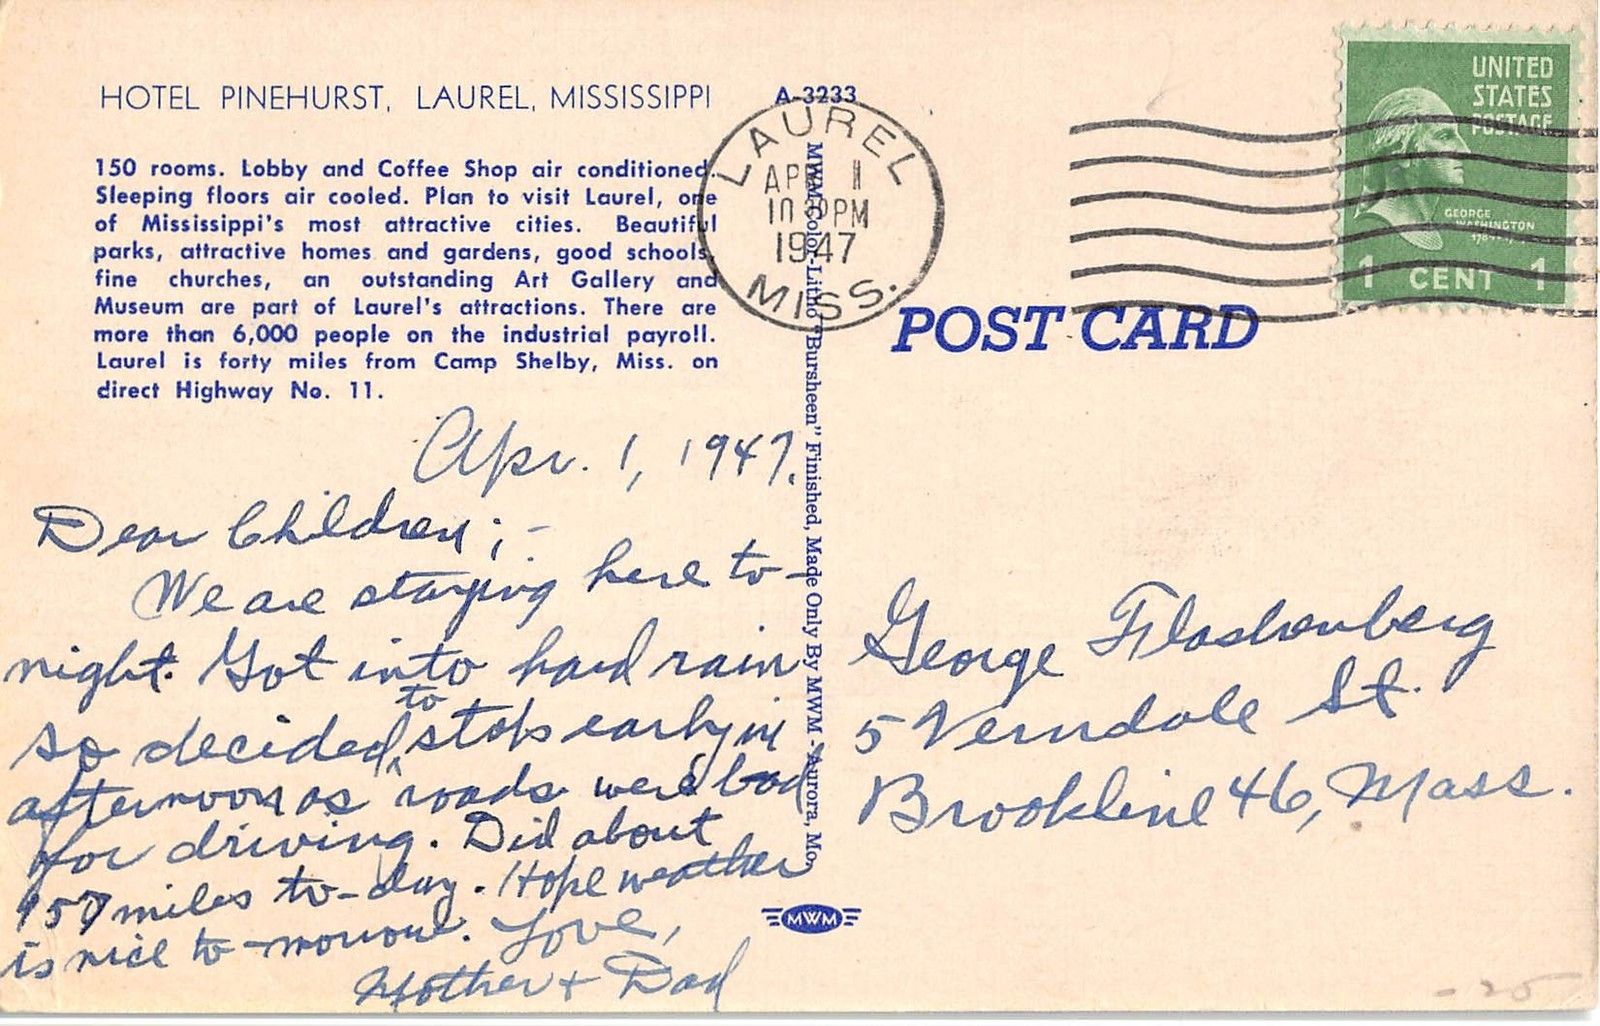 HOTEL PINEHURST, LAUREL, MISSISSIPPI
150 rooms. Lobby and Coffee Shop air conditioned.
Sleeping floors air cooled. Plan to visit Laurel, one
of Mississippi's most attractive cities. Beautiful
parks, attractive homes and gardens, good schools,
fine churches, an outstanding Art Gallery and
Museum are part of Laurel's attractions. There are
more than 6,000 people on the industrial payroll.
Laurel is forty miles from Camp Shelby, Miss. on
direct Highway No. 11.
Apr. 1, 1947.
Dear Children;-
We are staying here to-
night. Got into hard rain
so decided to stop early in
afternoon as roads were bad
for driving. Did about
miles to-day. Hope weather
is nice to-morrow. Love,
Mother + Dad
A-3233
MWM Color-Litho "Bursheen" Finished, Made Only By MWM - Aurora, Mo.
MWM
LAUREL
APR 1
PM
1947
MISS.
POST CARD
UNITED
STATES
POSTAGE
GEORGE
WASHINGTON
1 CENT 1
George
5 Verndale St.
Brookline 46, Mass.
-25